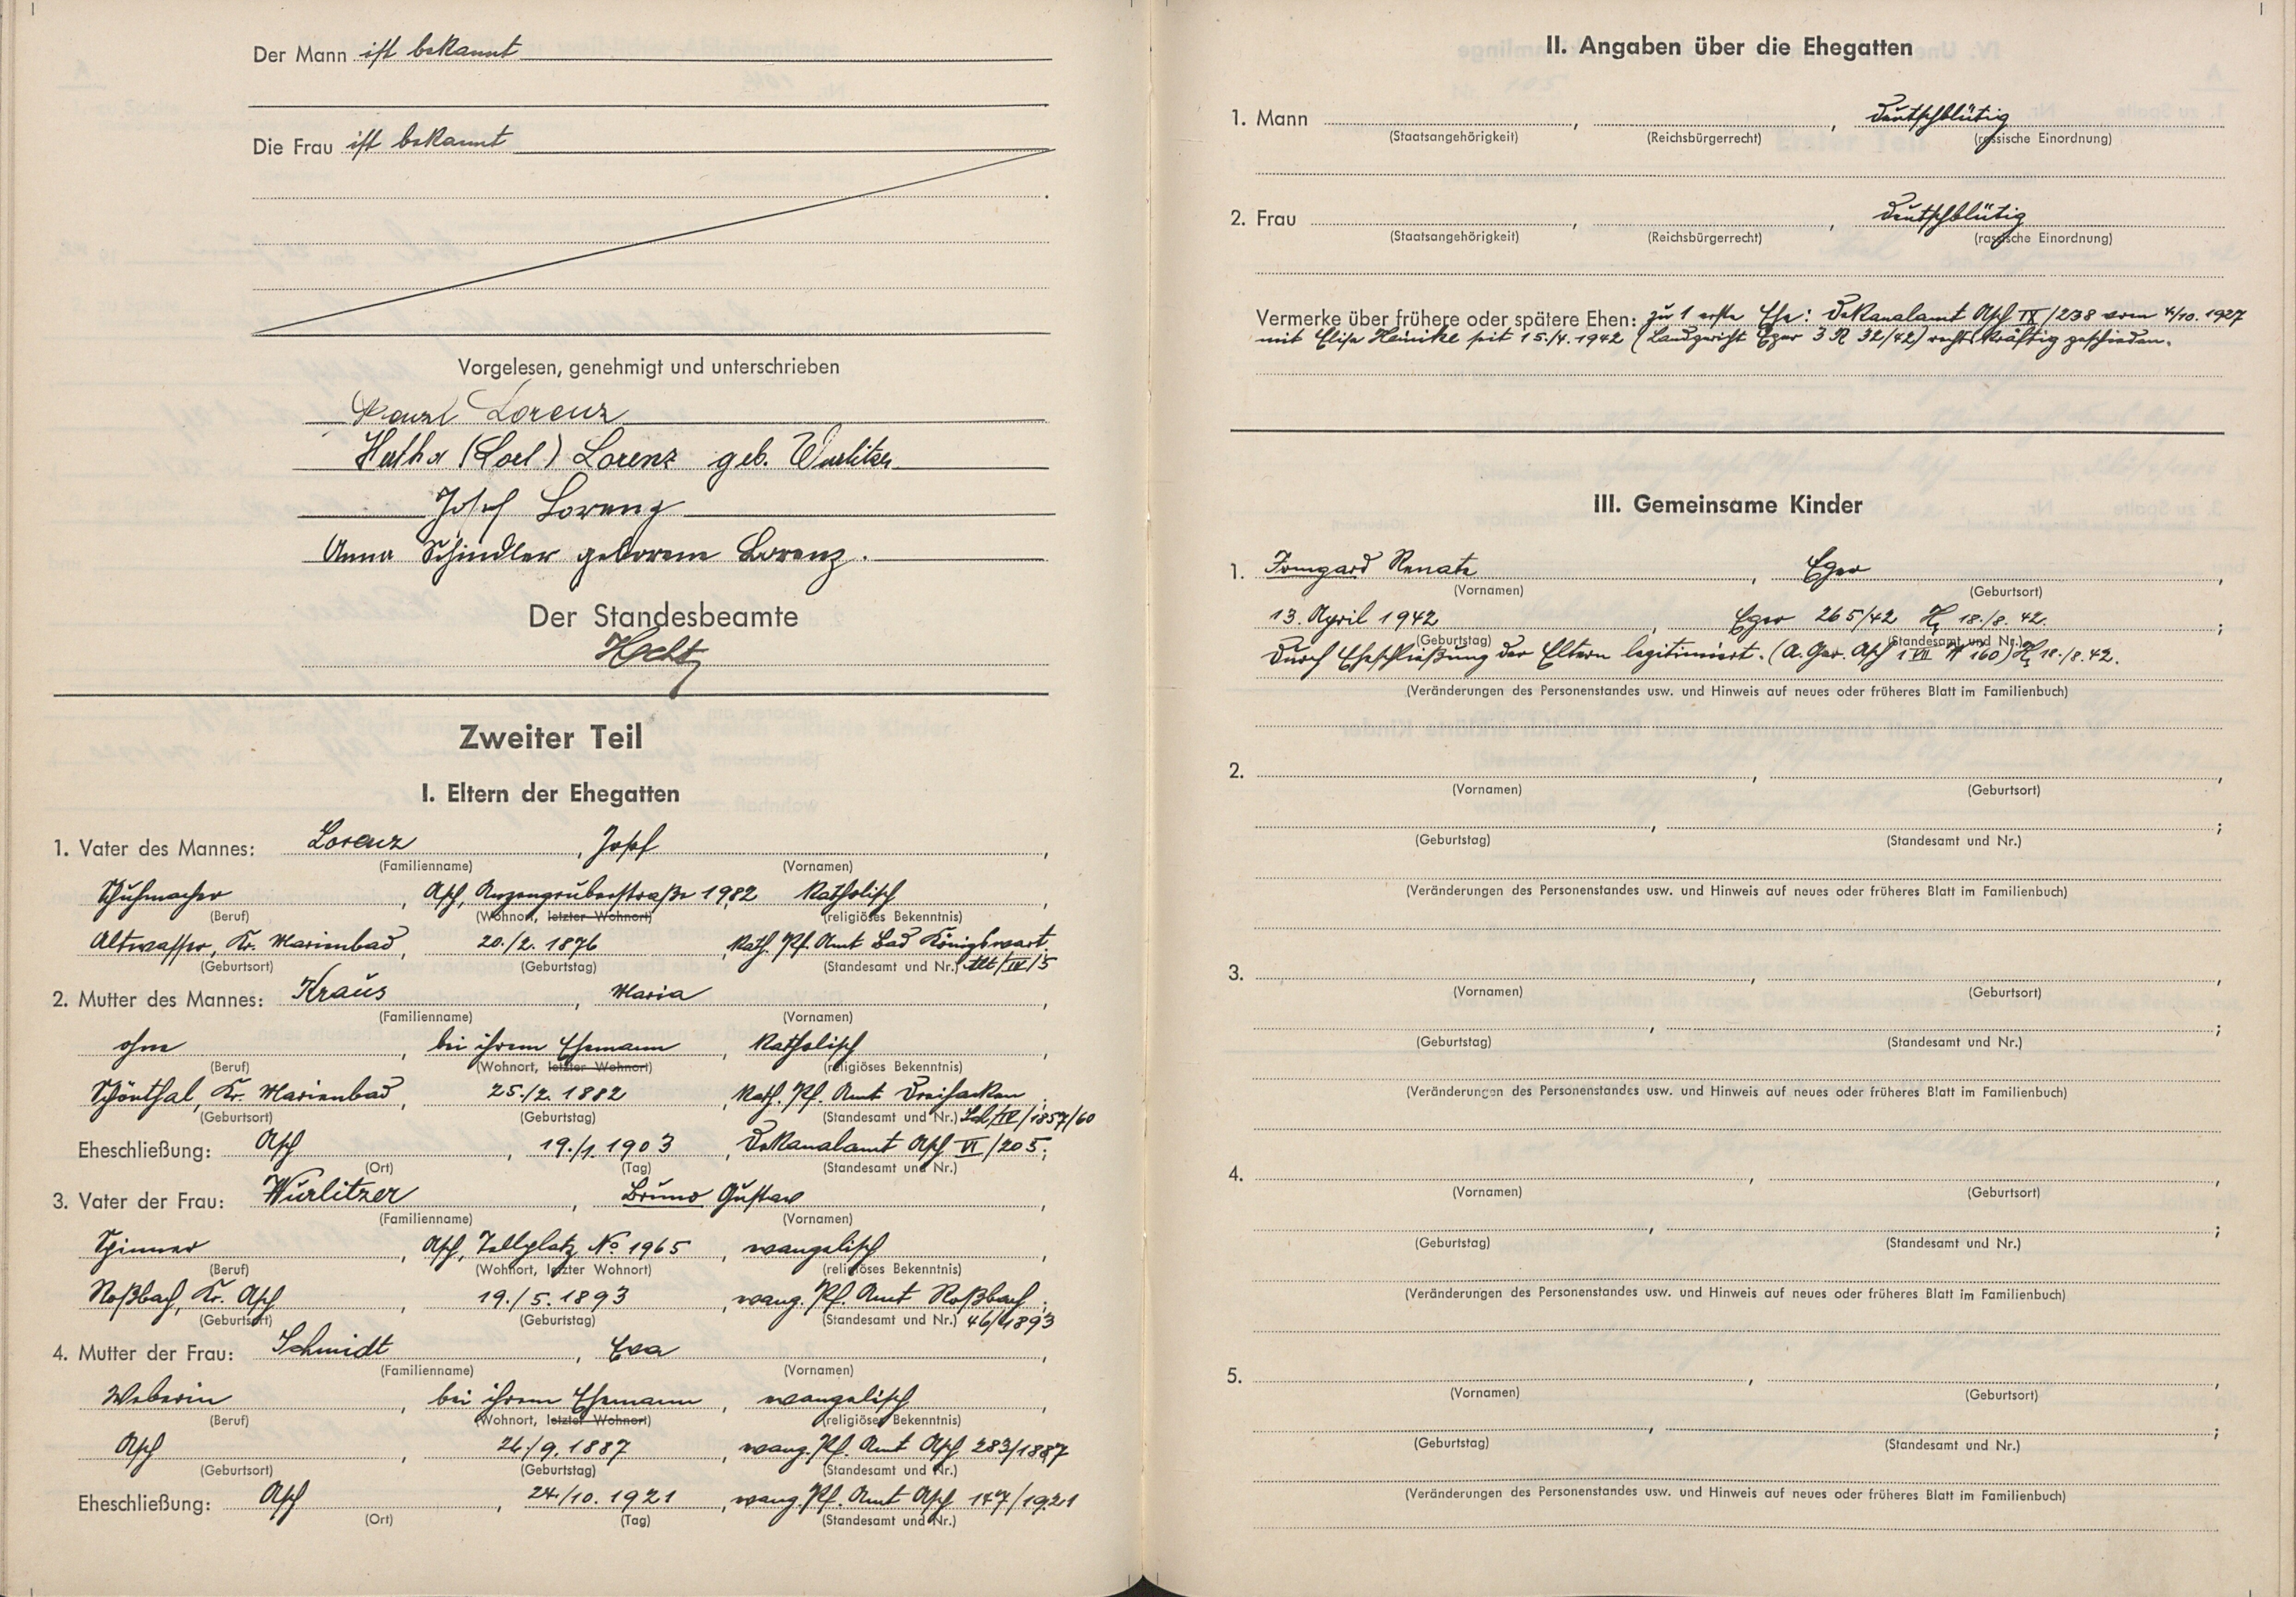 Der Mann ist bekannt
Die Frau ist bekannt
Vorgelesen, genehmigt und unterschrieben
Lorenz
(Lorl) Lorenz geb. Wurlitzer
Josef Lorenz
Anna Schindler geborene Lorenz.
Der Standesbeamte
Hecht
Zweiter Teil
I. Eltern der Ehegatten
1. Vater des Mannes: Lorenz, Josef,
(Familienname) (Vornamen)
Schuhmacher, Asch, Anzengruberstraße 1982 katholisch,
(Beruf) (Wohnort, letzter Wohnort) (religiöses Bekenntnis)
Altwasser, Kr. Marienbad, 20./2. 1876, Kath. Pf. Amt Bad Königswart
(Geburtsort) (Geburtstag) (Standesamt und Nr.) Alt/IV/5
2. Mutter des Mannes: Kraus, Maria,
(Familienname) (Vornamen)
ohne, bei ihrem Ehemann, katholisch,
(Beruf) (Wohnort, letzter Wohnort) (religiöses Bekenntnis)
Schönthal, Kr. Marienbad, 25./2. 1882, Kath. Pf. Amt Dreihacken
(Geburtsort) (Geburtstag) (Standesamt und Nr.) /1857/60
Eheschließung: Asch, 19./1. 1903, Dekanalamt Asch VI/205;
(Ort) (Tag) (Standesamt und Nr.)
3. Vater der Frau: Wurlitzer, Bruno Gustav,
(Familienname) (Vornamen)
Spinner, Asch, Zollplatz No 1965, evangelisch,
(Beruf) (Wohnort, letzter Wohnort) (religiöses Bekenntnis)
Roßbach, Kr. Asch, 19./5. 1893, evang. Pf. Amt Roßbach;
(Geburtsort) (Geburtstag) (Standesamt und Nr.) 46/1893
4. Mutter der Frau: Schmidt, Eva,
(Familienname) (Vornamen)
Weberin, bei ihrem Ehemann, evangelisch,
(Beruf) (Wohnort, letzter Wohnort) (religiöses Bekenntnis)
Asch, /9. 1887, evang. Pf. Amt Asch 283/1887
(Geburtsort) (Geburtstag) (Standesamt und Nr.)
Eheschließung: Asch, 24./10. 1921, evang. Pf. Amt Asch 147/1921
(Ort) (Tag) (Standesamt und Nr.)
II. Angaben über die Ehegatten
1. Mann , , deutschblütig
(Staatsangehörigkeit) (Reichsbürgerrecht) (rassische Einordnung)
2. Frau , , deutschblütig
(Staatsangehörigkeit) (Reichsbürgerrecht) (rassische Einordnung)
Vermerke über frühere oder spätere Ehen: zu 1 erste Ehe: Dekanalamt Asch IX/238 vom 4/10. 1927
mit Elise Heinicke seit 15./4. 1942 (Landgericht Eger 3 R 32/42) rechtskräftig geschieden.
III. Gemeinsame Kinder
1. Irmgard Renate, Eger,
(Vornamen) (Geburtsort)
13. April 1942, Eger 265/42 18./8. 42.;
(Geburtstag) (Standesamt und Nr.)
Durch Eheschließung der Eltern legitimiert. (A. Ger. Asch 1 VII 160) 18./8. 42.
(Veränderungen des Personenstandes usw. und Hinweis auf neues oder früheres Blatt im Familienbuch)
2. , ,
(Vornamen) (Geburtsort)
, ;
(Geburtstag) (Standesamt und Nr.)
(Veränderungen des Personenstandes usw. und Hinweis auf neues oder früheres Blatt im Familienbuch)
3. , ,
(Vornamen) (Geburtsort)
, ;
(Geburtstag) (Standesamt und Nr.)
(Veränderungen des Personenstandes usw. und Hinweis auf neues oder früheres Blatt im Familienbuch)
4. , ,
(Vornamen) (Geburtsort)
, ;
(Geburtstag) (Standesamt und Nr.)
(Veränderungen des Personenstandes usw. und Hinweis auf neues oder früheres Blatt im Familienbuch)
5. , ,
(Vornamen) (Geburtsort)
, ;
(Geburtstag) (Standesamt und Nr.)
(Veränderungen des Personenstandes usw. und Hinweis auf neues oder früheres Blatt im Familienbuch)